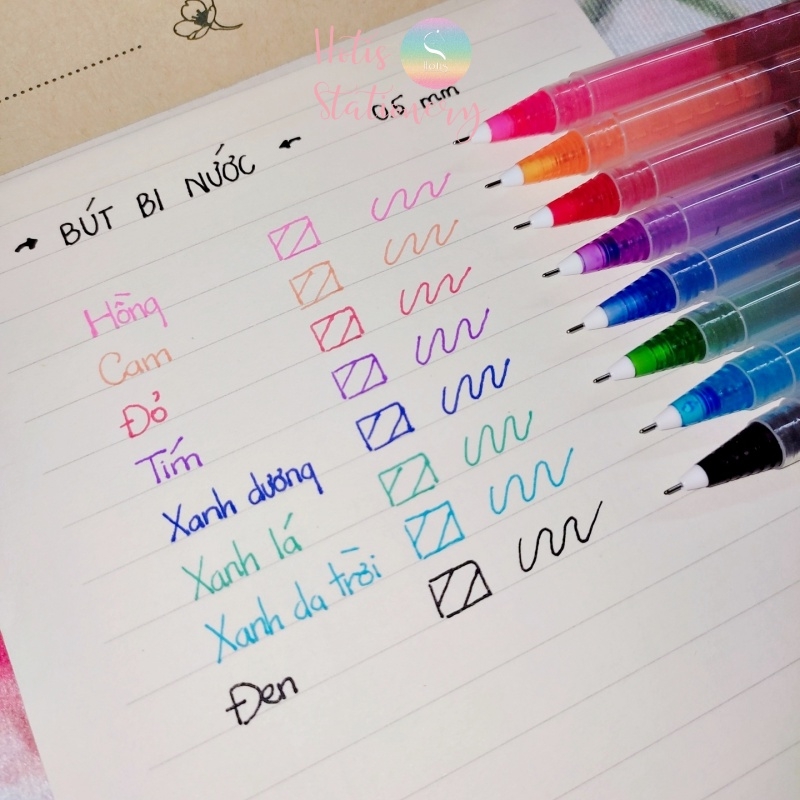 Hotis
Hotis
Stationery
0.5 mm
→ BÚT BI NƯỚC ←
Hồng
Cam
Đỏ
Tím
Xanh dương
Xanh lá
Xanh da trời
Đen